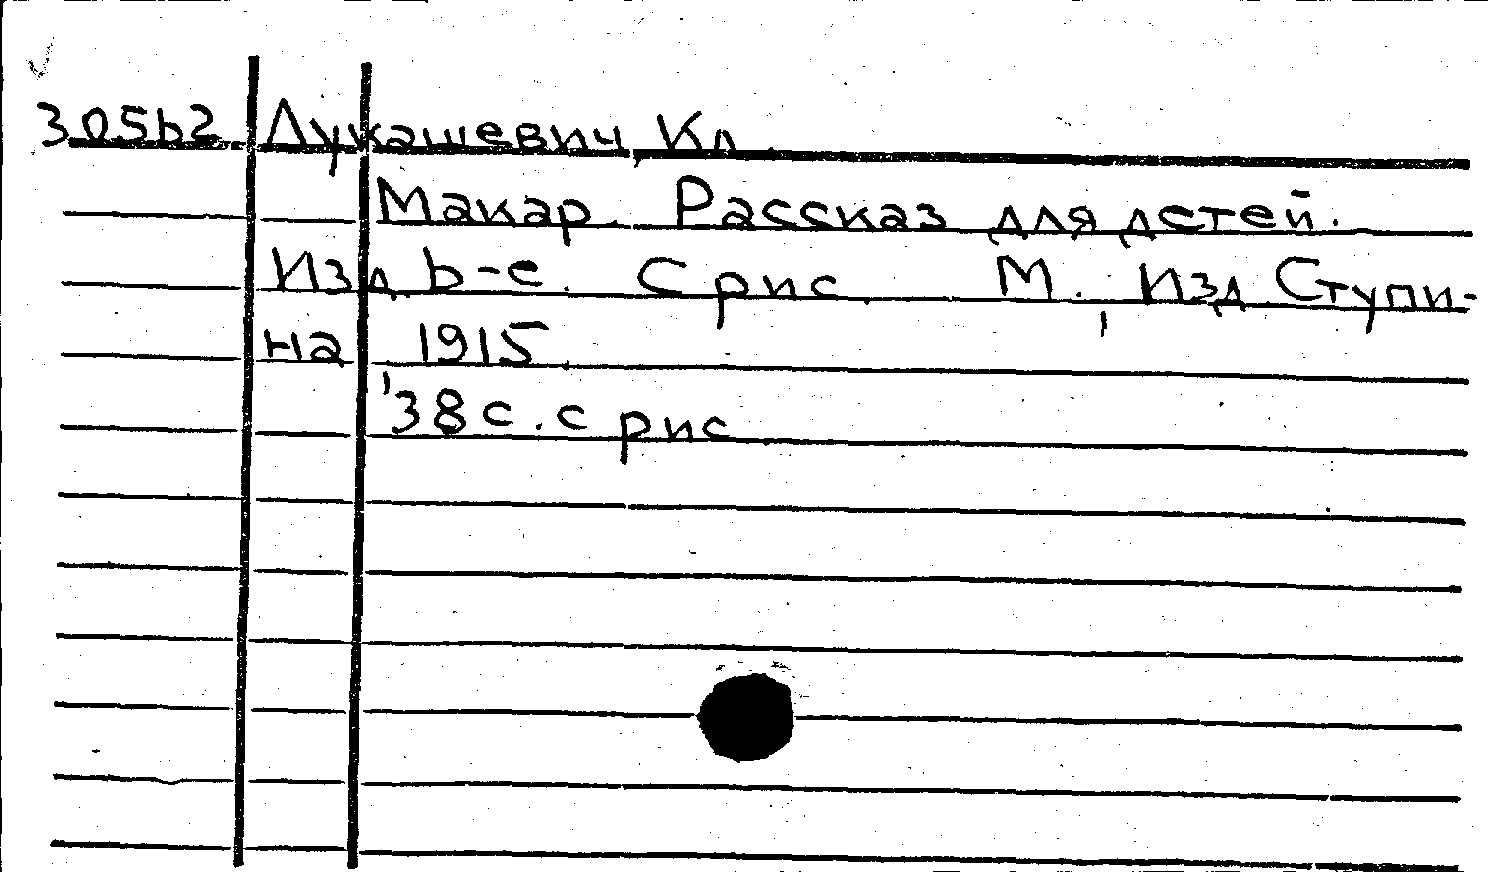 30562 Лукашевич, Кл.
Макар. Рассказ для детей.
Изд. 6-е. С рис. М., Изд. Ступи-
на, 1915.
38 с. с рис.